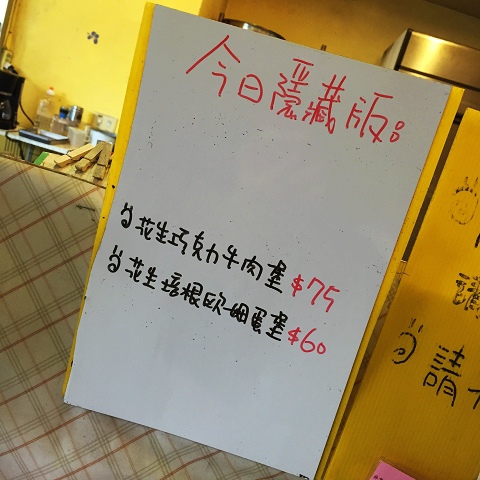 今日隱藏版:
花生巧克力牛肉堡 $75
花生培根歐姆蛋堡 $60
請